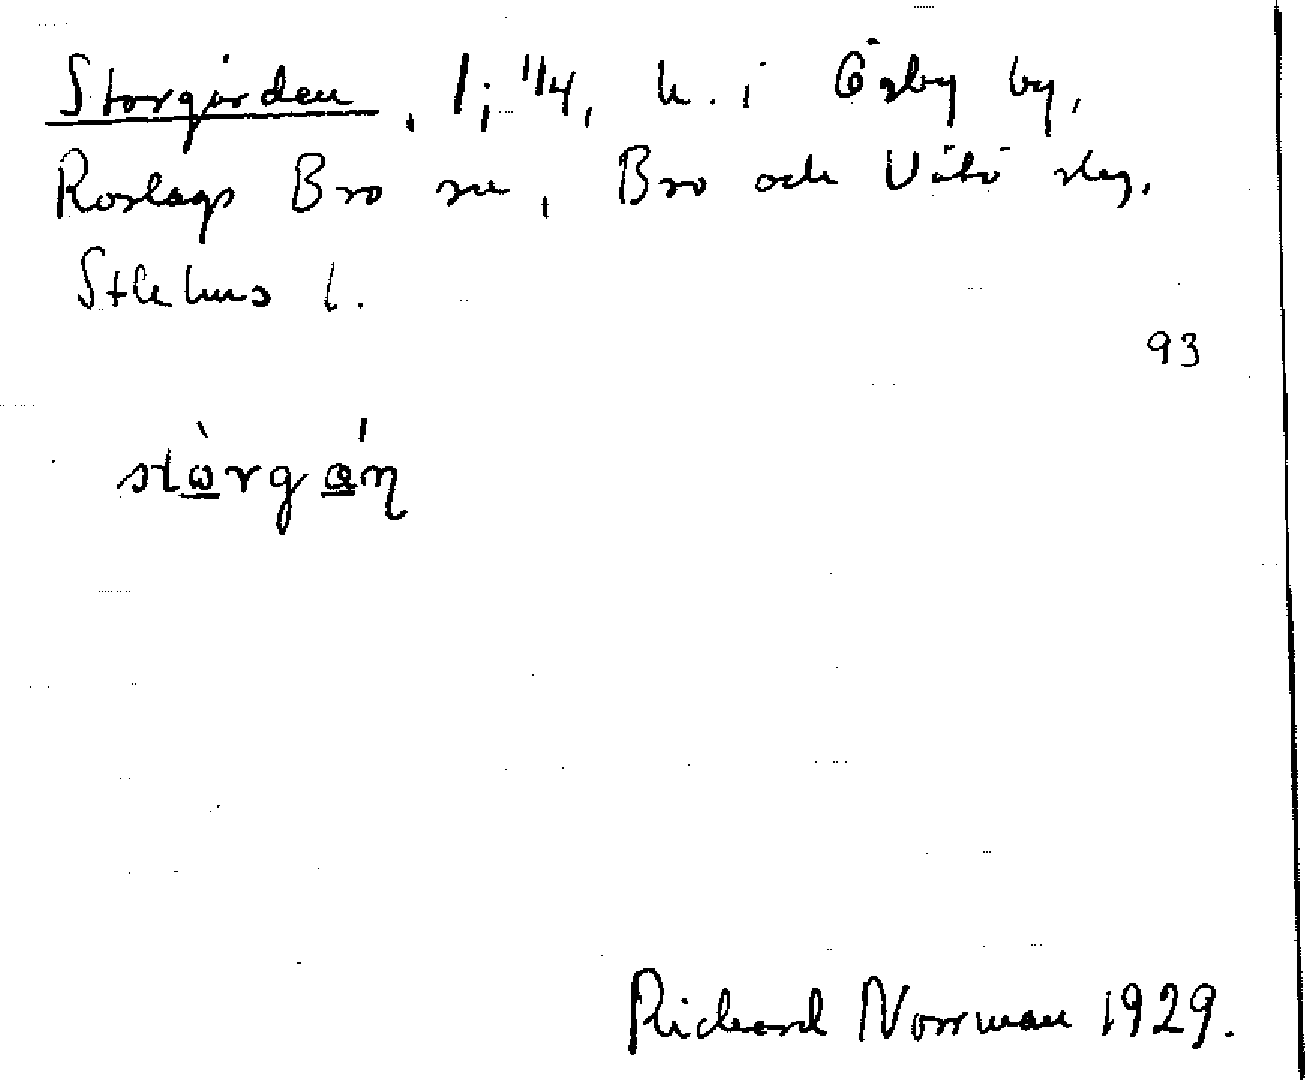 Storgården, 1; 1/4, h. i Ösby by,
Roslags Bro sn, Bro och Vätö skg.
Sthlms l.
93
stòrgáη
Richard Norrman 1929.